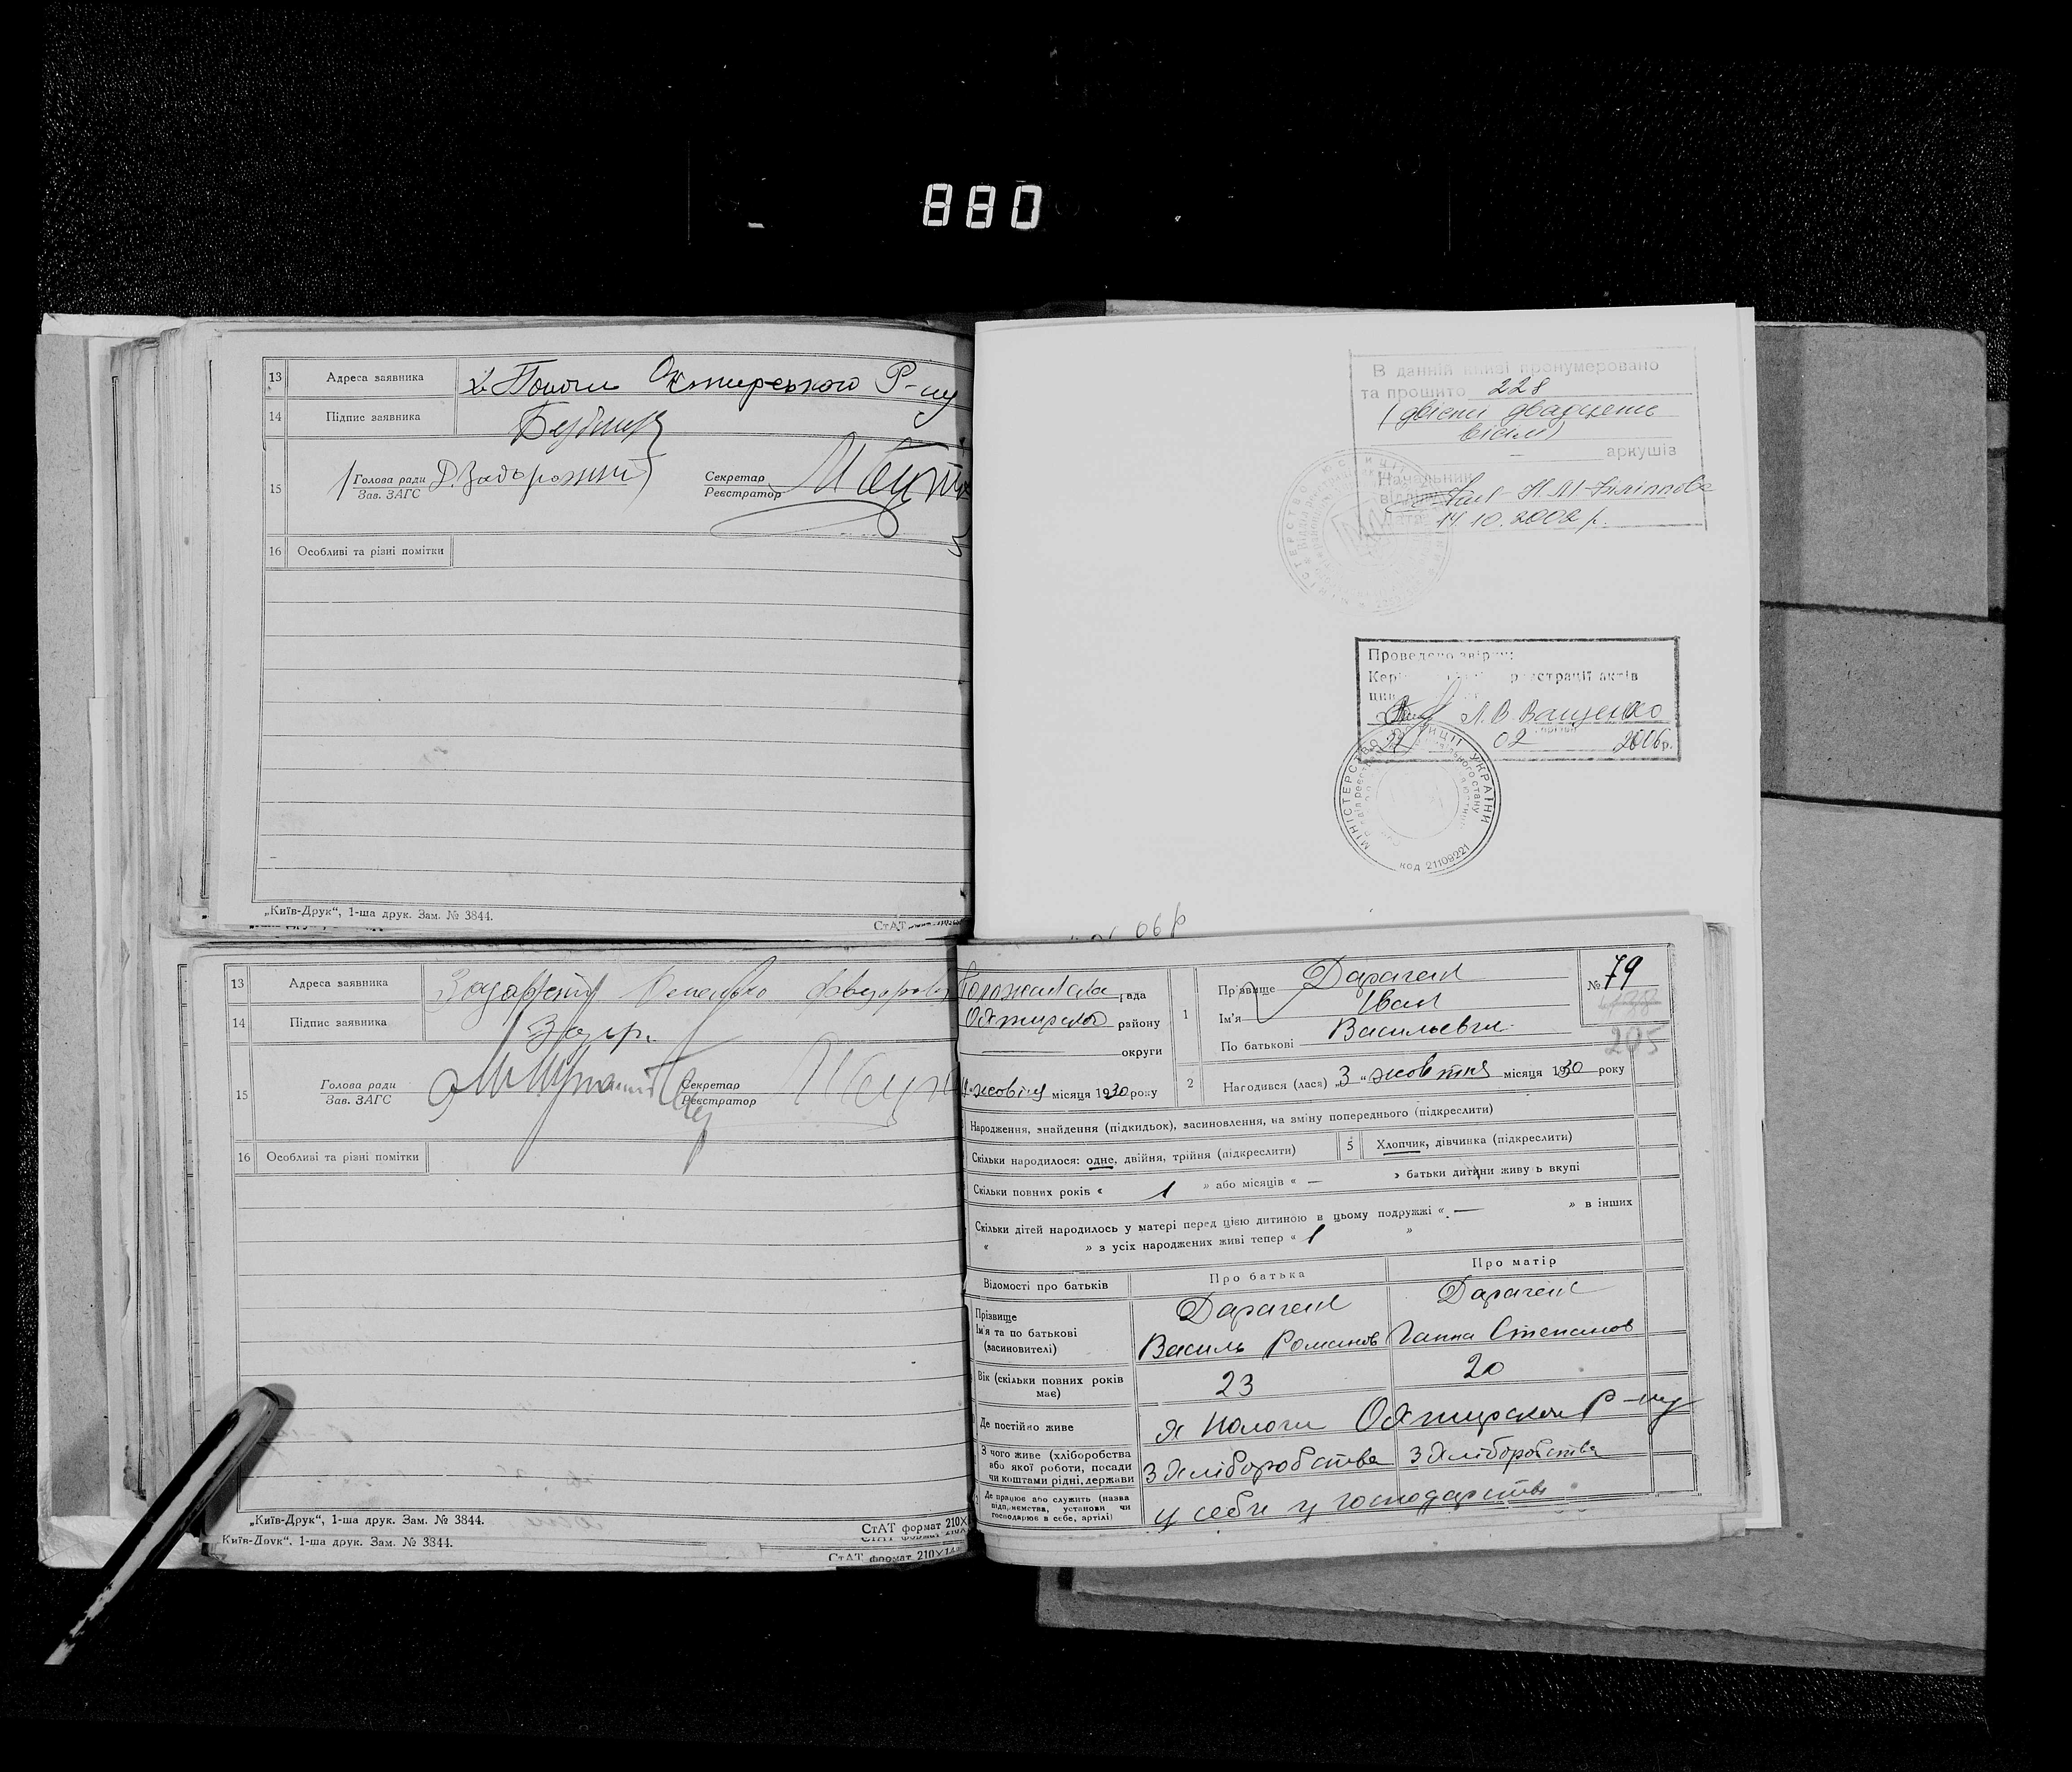 880
13 Адреса заявника х. Пологи Охтирського Р-ну
14 Підпис заявника
15 Голова ради Д. Задорожний Секретар
Зав. ЗАГС Реєстратор
16 Особливі та різні помітки
„Київ-Друк“, 1-ша друк. Зам. № 3844.
СтАТ
В данній книзі пронумеровано
та прошито 228
(двісти двадцять
вісім)
аркушів
Начальник
відділу Н.М.
14.10.2002 р.
Проведено звірку:
реєстрації актів
Л.В. Ващенко
27 02 2006р.
МІНІСТЕРСТВО ЮСТИЦІЇ УКРАЇНИ
код 21109221
06 р
13 Адреса заявника
14 Підпис заявника
15 Голова ради Секретар
Зав. ЗАГС Реєстратор
16 Особливі та різні помітки
„Київ-Друк“, 1-ша друк. Зам. № 3844.
СтАТ формат 210×
Київ-Друк“, 1-ша друк. Зам. № 3844.
СтАТ формат 210×14
рада
району
округи
жовтня місяця 1930 року
1 Прізвище Дараган
Ім'я Іван
По батькові Васильевич
№ 79
205
2 Народився (лася) „3“ жовтня місяця 1930 року
Народження, знайдення (підкидьок), васиновлення, на зміну попереднього (підкреслити)
Скільки народилося: одне, двійня, трійня (підкреслити) 5 Хлопчик, дівчинка (підкреслити)
Скільки повних років « 1 » або місяців « — » батьки дитини живуть вкупі
Скільки дітей народилось у матері перед цією дитиною в цьому подружжі « — » в інших
« » з усіх народжених живі тепер « 1 »
Відомості про батьків Про батька Про матір
Прізвище Дараган Дараган
Ім'я та по батькові Василь Романов Ганна Степанов
(васиновителі)
Вік (скільки повних років має) 23 20
Де постійно живе х Пологи Охтирськ Р-ну
З чого живе (хліборобства або якої роботи, посади чи коштами рідні, держави З хліборобства З хліборобства
Де працює або служить (назва підприємства, установи чи господарює в себе, артілі) у себе у господарстві